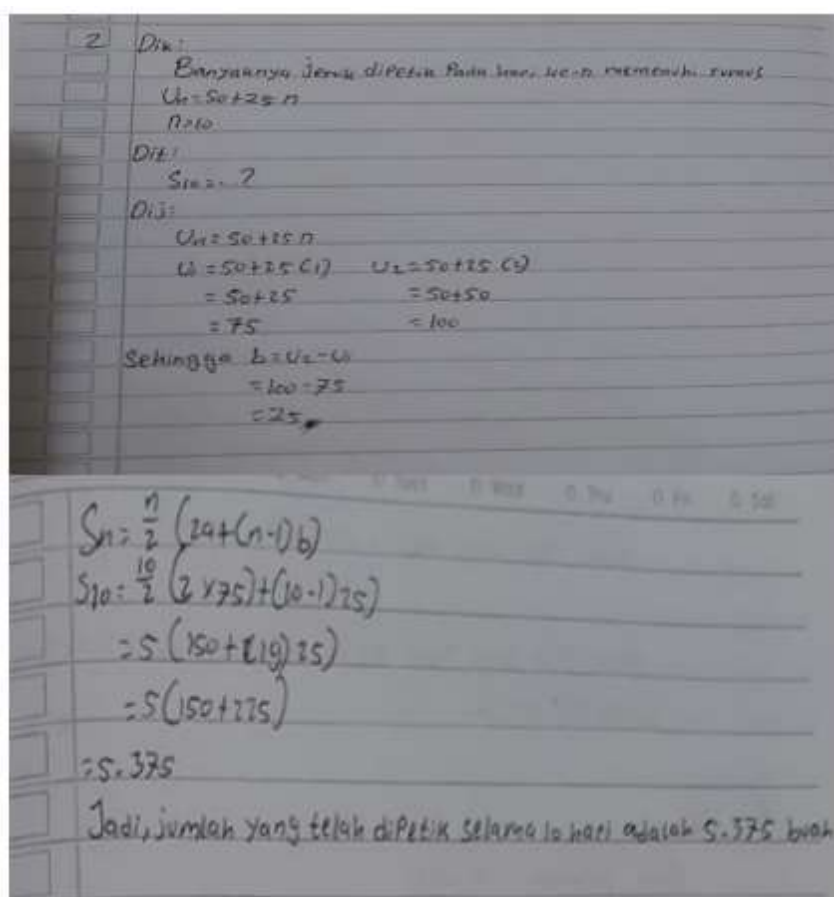 2 Dik:
Banyaknya Jeruk dipetik Pada hari ke-n memenuhi rumus
Un = 50 + 25 n
n = 10
Dit:
S10 = . ?
Dij:
Un = 50 + 25 n
U1 = 50 + 25 (1) U2 = 50 + 25 (2)
= 50 + 25 = 50 + 50
= 75 = 100
Sehingga b = U2 - U1
= 100 - 75
= 25
Sn = n/2 (2a + (n-1) b)
S10 = 10/2 (2 x 75) + (10-1) 25)
= 5 (150 + (9) 25)
= 5 (150 + 225)
= 5.375
Jadi, jumlah yang telah dipetik selama 10 hari adalah 5.375 buah